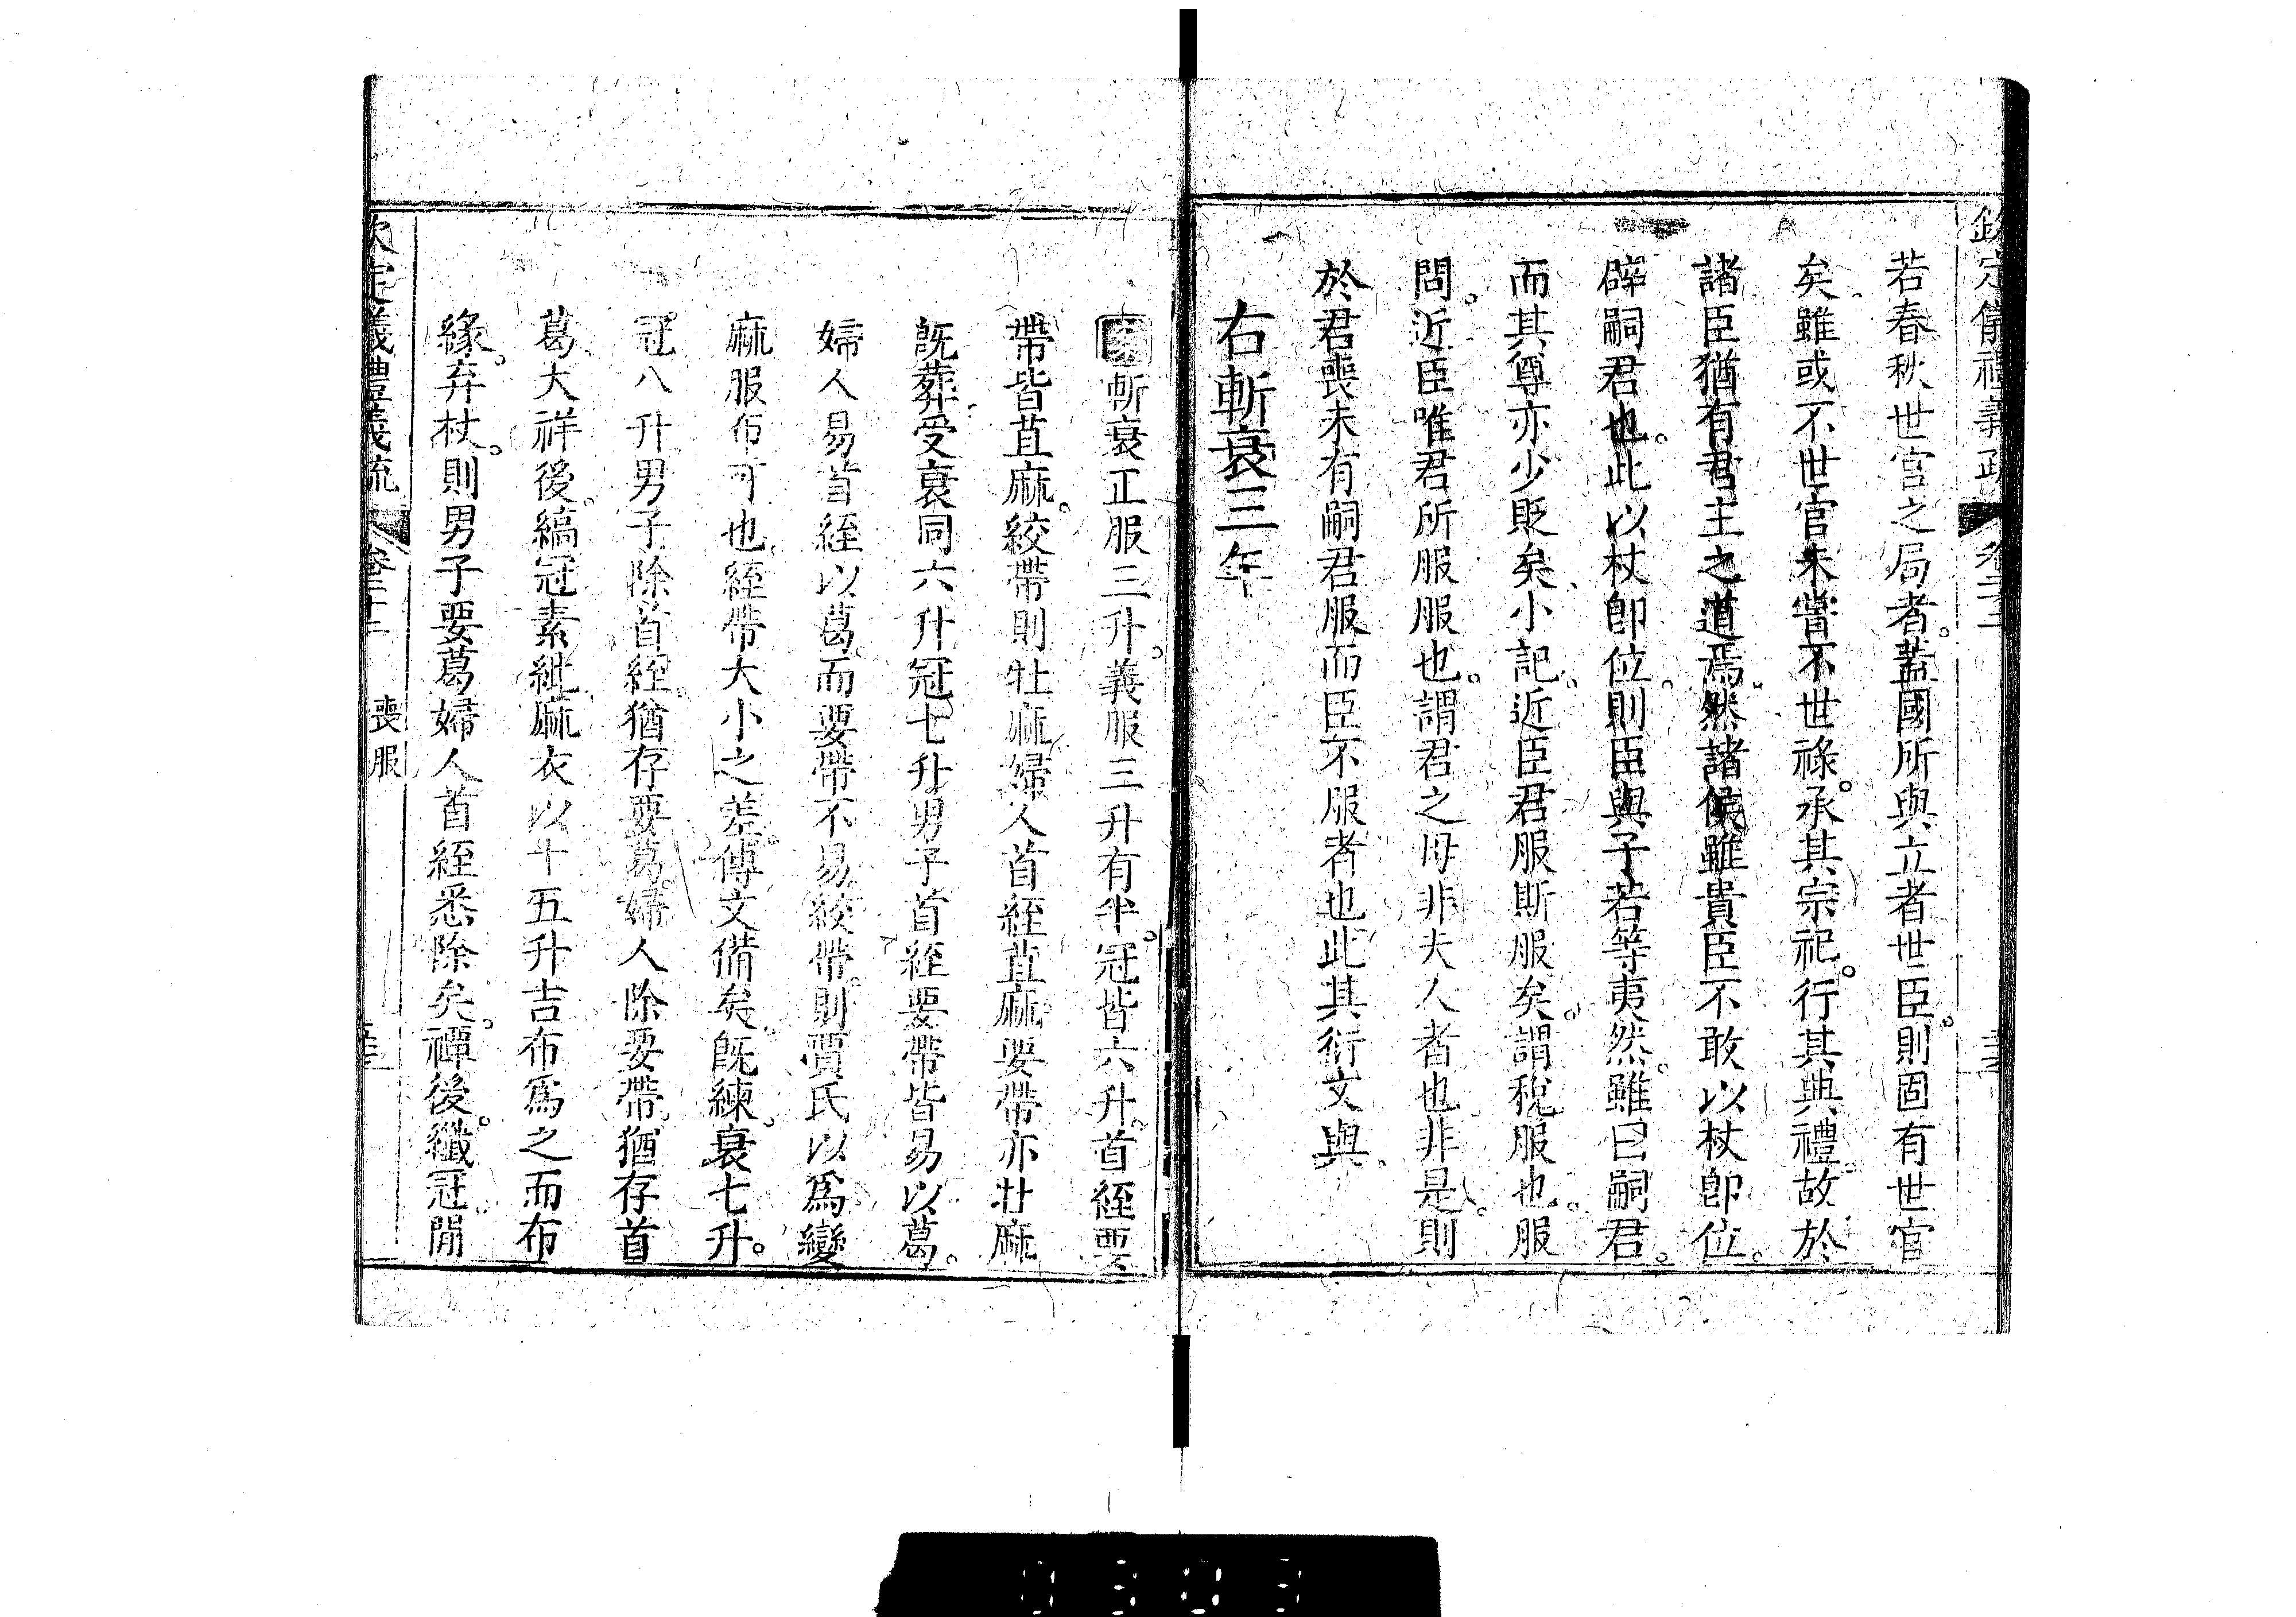 欽定儀禮義疏 卷二十二
若春秋世官之局者。蓋國所與立者世臣。則固有世官
矣。雖或不世官。未嘗不世祿。承其宗祀。行其典禮。故於
諸臣猶有君主之道焉。然諸侯雖貴。臣不敢以杖卽位。
辟嗣君也。此以杖卽位。則臣與子若等夷然。雖曰嗣君。
而其尊亦少貶矣。小記。近臣君服斯服矣。謂稅服也。服
問。近臣唯君所服服也。謂君之母非夫人者也。非是。則
於君喪未有嗣君服而臣不服者也。此其衍文與
右斬衰三年
斬衰正服三升。義服三升有半。冠皆六升。首絰要
帶皆苴麻。絞帶則牡麻。婦人首絰苴麻。要帶亦牡麻
旣葬。受衰同六升。冠七升。男子首絰要帶皆易以葛。
婦人易首絰以葛。而要帶不易。絞帶。則賈氏以爲變
麻服布可也。絰帶大小之差。傳文備矣。旣練。衰七升。
冠八升。男子除首絰。猶存要葛。婦人除要帶。猶存首
葛。大祥後。縞冠素紕。麻衣以十五升吉布爲之而布
緣。弃杖。則男子要葛婦人首絰悉除矣。禫後。纖冠。閒
欽定儀禮義疏 卷二十二 喪服
0303